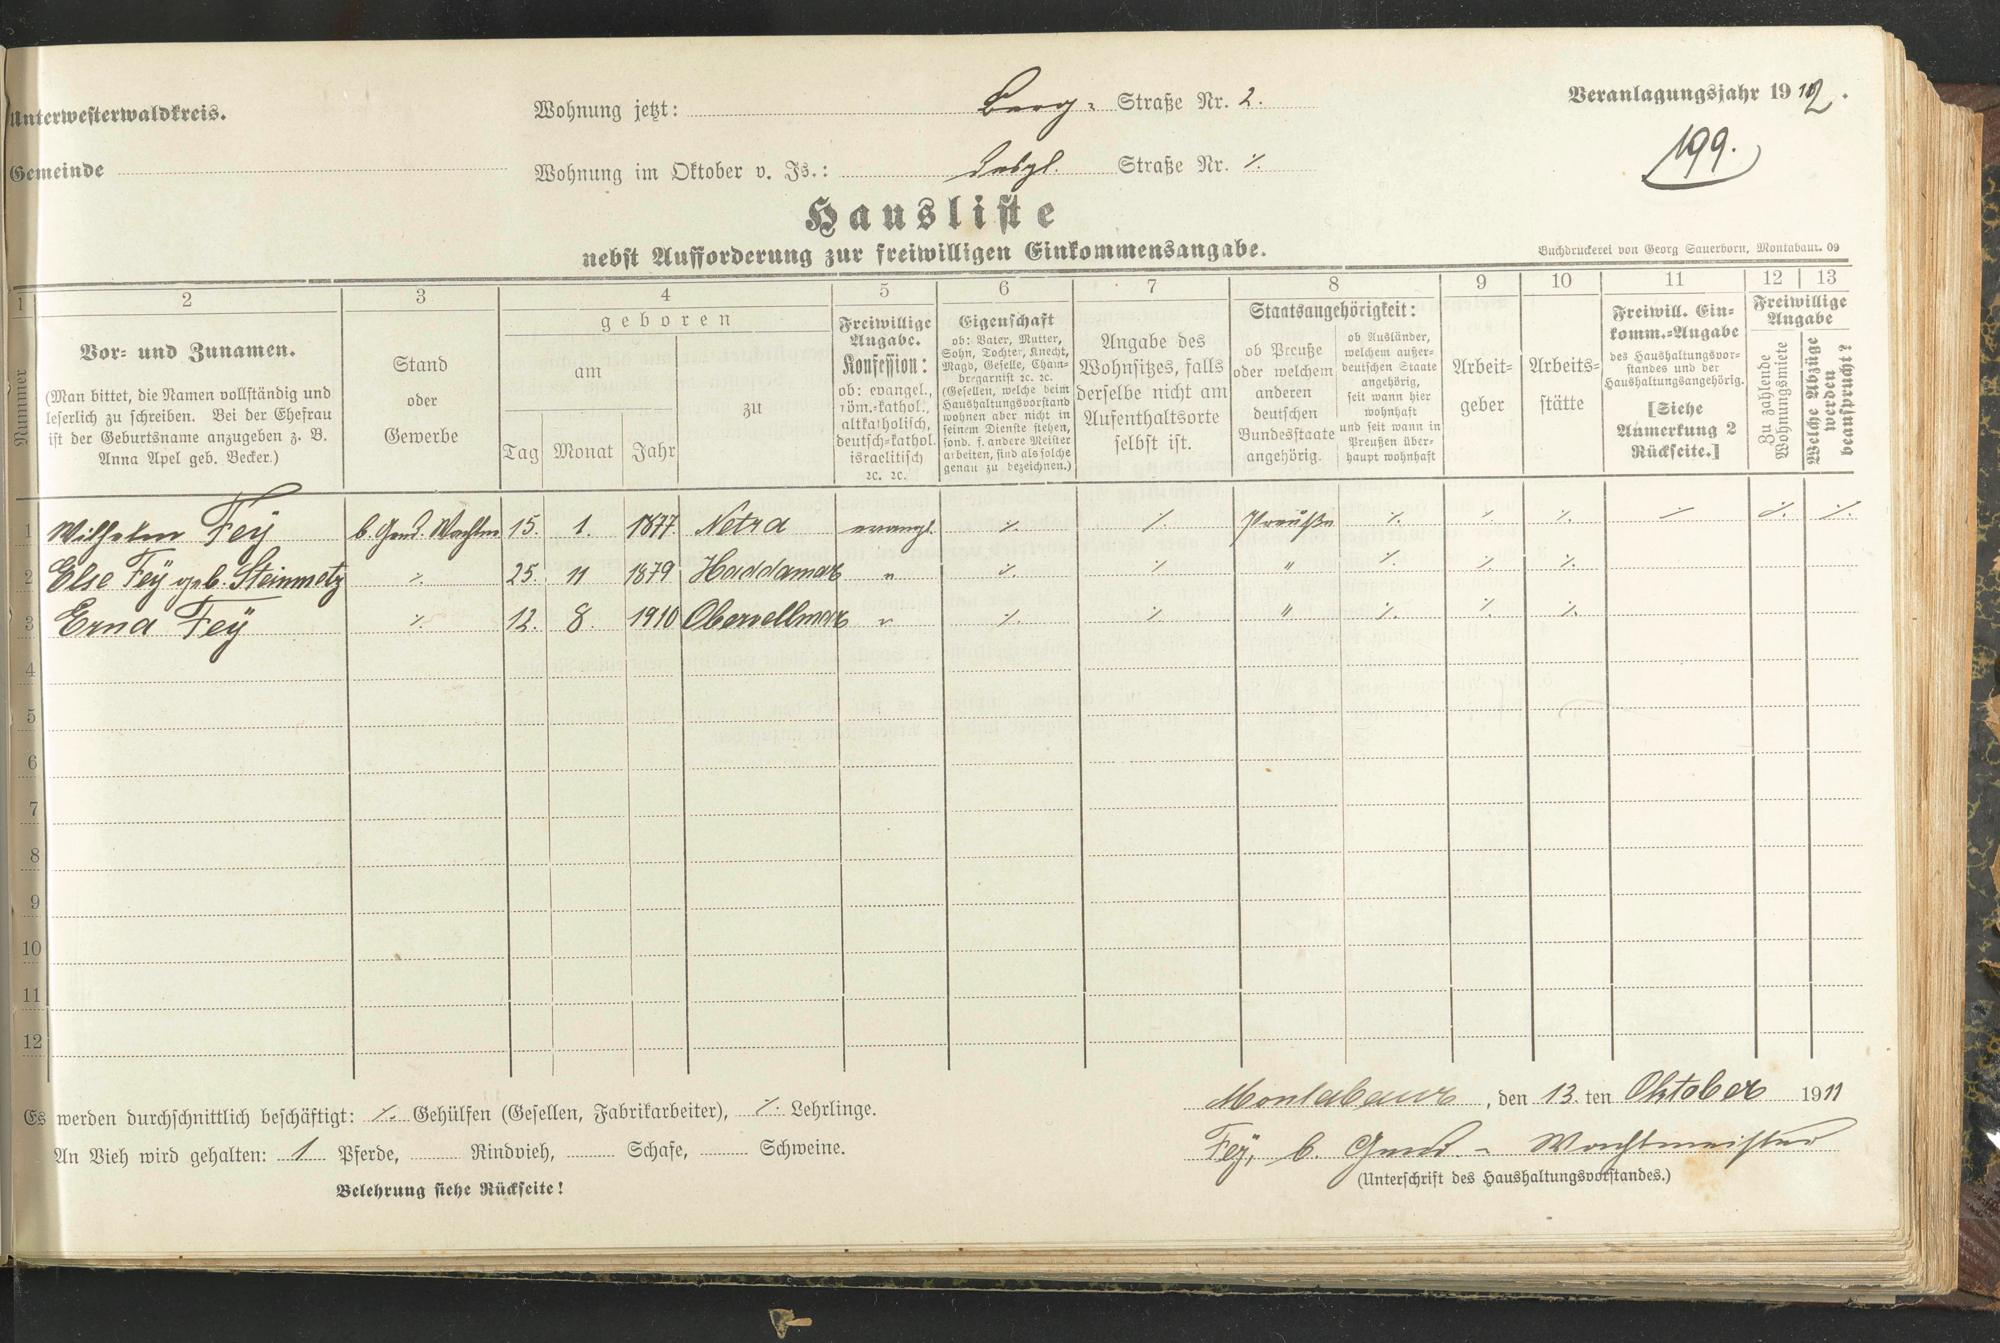 Unterwesterwaldkreis.
Wohnung jetzt: Berg- Straße Nr. 2.
Veranlagungsjahr 1912.
199.
Gemeinde
Wohnung im Oktober v. Js.: Desgl. Straße Nr. ·/.
Hausliste
nebst Aufforderung zur freiwilligen Einkommensangabe.
Buchdruckerei von Georg Sauerborn, Montabaur. 09
1 2 3 4 5 6 7 8 9 10 11 12 13
Nummer
Vor- und Zunamen.
(Man bittet, die Namen vollständig und
leserlich zu schreiben. Bei der Ehefrau
ist der Geburtsname anzugeben z. B.
Anna Apel geb. Becker.)
Stand
oder
Gewerbe
geboren
am
zu
Tag Monat Jahr
Freiwillige
Angabe.
Konfession:
ob: evangel.,
röm.-kathol.,
altkatholisch,
deutsch-kathol.
israelitisch
ꝛc. ꝛc.
Eigenschaft
ob: Vater, Mutter,
Sohn, Tochter, Knecht,
Magd, Geselle, Cham-
bregarnist ꝛc. ꝛc.
(Gesellen, welche beim
Haushaltungsvorstand
wohnen aber nicht in
seinem Dienste stehen,
sond. f. andere Meister
arbeiten, sind als solche
genau zu bezeichnen.)
Angabe des
Wohnsitzes, falls
derselbe nicht am
Aufenthaltsorte
selbst ist.
Staatsangehörigkeit:
ob Preuße
oder welchem
anderen
deutschen
Bundesstaate
angehörig.
ob Ausländer,
welchem außer-
deutschen Staate
angehörig,
seit wann hier
wohnhaft
und seit wann in
Preußen über-
haupt wohnhaft
Arbeit-
geber
Arbeits-
stätte
Freiwill. Ein-
komm.-Angabe
des Haushaltungsvor-
standes und der
Haushaltungsangehörig.
[Siehe
Anmerkung 2
Rückseite.]
Freiwillige
Angabe
Zu zahlende
Wohnungsmiete
Welche Abzüge
werden
beansprucht?
1 Wilhelm Fey b. Gend. Wachtm 15. 1. 1877. Netra evangl. ·/. ·/. Preuße ·/. ·/. ·/. ·/. ·/. ·/.
2 Else Fey geb. Steinmetz ·/. 25. 11 1879 Haddamar " ·/. ·/. " ·/. ·/. ·/.
3 Erna Fey ·/. 12. 8. 1910 Obervellmar " ·/. ·/. " ·/. ·/. ·/.
4
5
6
7
8
9
10
11
12
Es werden durchschnittlich beschäftigt: ·/. Gehülfen (Gesellen, Fabrikarbeiter), ·/. Lehrlinge.
An Vieh wird gehalten: 1 Pferde, Rindvieh, Schafe, Schweine.
Belehrung siehe Rückseite!
Montabaur, den 13. ten Oktober 1911
Fey, b. Gend.- Wachtmeister
(Unterschrift des Haushaltungsvorstandes.)